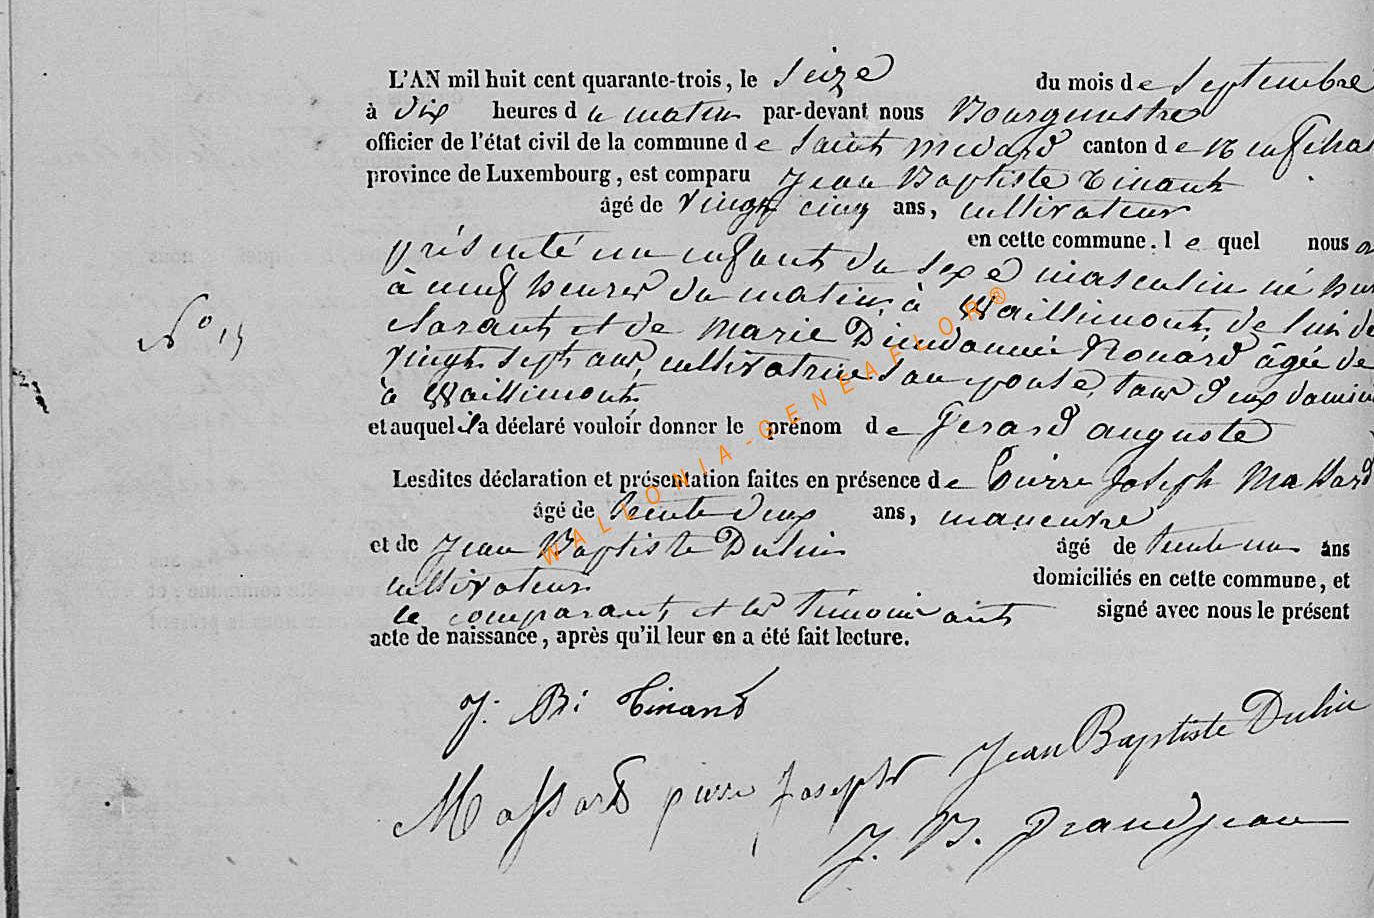 L'AN mil huit cent quarante-trois, le Seize du mois de Septembre
à dix heures du matin par-devant nous Bourguestre
officier de l'état civil de la commune de Saint medard canton de Neufchat
province de Luxembourg, est comparu Jean Baptiste Tinant
âgé de vingt cinq ans, cultivateur
en cette commune. lequel nous a
présenté un enfant du sexe masculin né
à neuf heures du matin, à Waillimont, de lui dé
clarant et de Marie Dieudonnée Rouard âgée de
N° 15
vingt sept ans, cultivatrice son épouse, tous deux domici
à Waillimont
et auquel il a déclaré vouloir donner le prénom de Gerard auguste
Lesdites déclaration et présentation faites en présence de Pierre Joseph Massard
âgé de trente deux ans, maneuvre
et de Jean Baptiste Dulin âgé de trente un ans
cultivateur domiciliés en cette commune, et
le comparant et les témoins ont signé avec nous le présent
acte de naissance, après qu'il leur en a été fait lecture.
J. Bt Tinant
Jean Baptiste Dulin
Massard pierre Joseph
J. B. Grandjean
WALLONIA-GENEAFLOR®